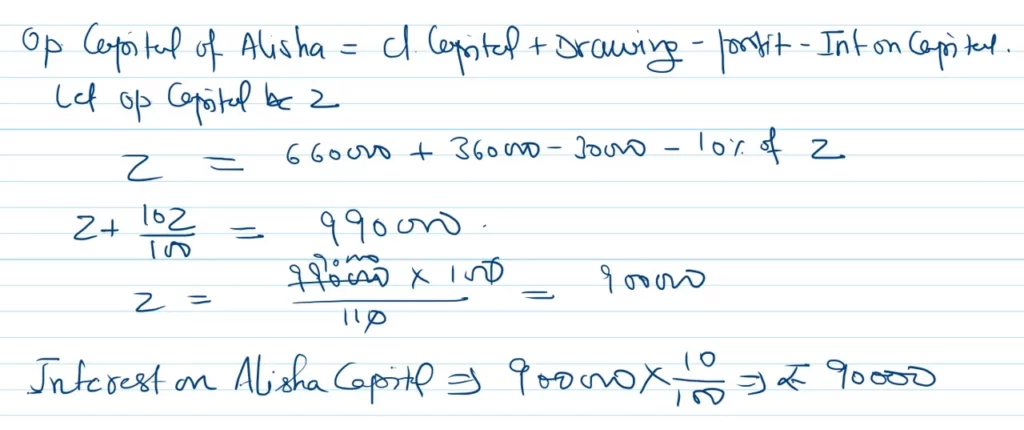 Op Capital of Alisha = Cl. Capital + Drawing - profit - Int on Capital.
Let op Capital be Z
Z = 660000 + 360000 - 30000 - 10% of Z
Z + 10Z/100 = 990000.
Z = 990000 × 100 / 110 = 900000
Interest on Alisha Capital ⇒ 900000 × 10/100 ⇒ ₹ 90000